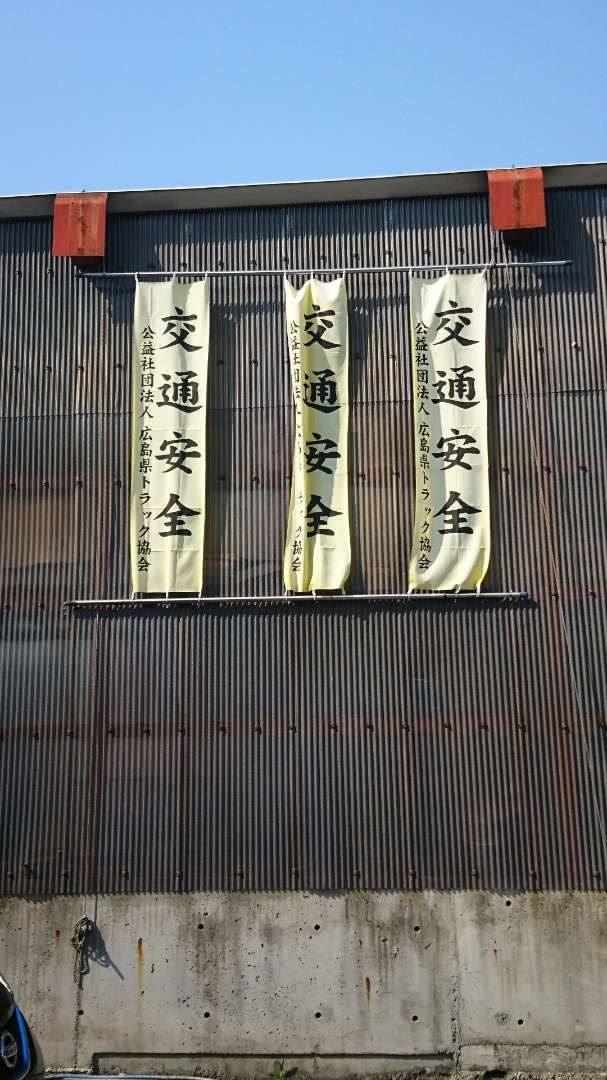 交通安全
公益社団法人 広島県トラック協会
交通安全
公益社団法人
ック協会
交通安全
公益社団法人 広島県トラック協会